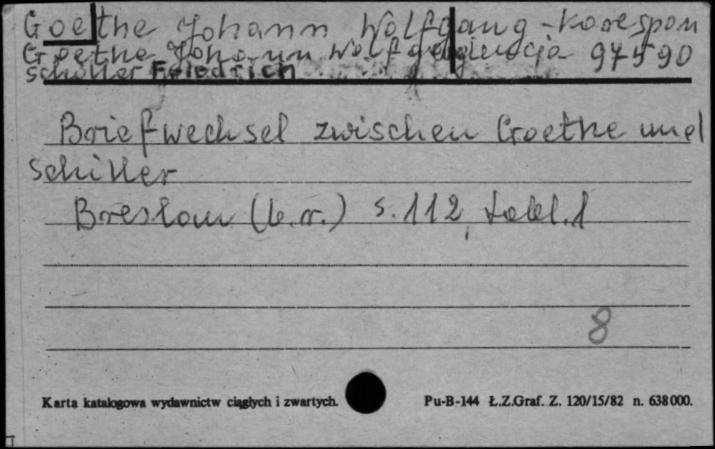 Goethe Johann Wolfgang - korespon
Goethe Johann Wolfgang dencja 97590
Schiller Friedrich
Briefwechsel zwischen Goethe und
Schiller
Breslau (b.r.) s. 112, tabl. 1
8
Karta katalogowa wydawnictw ciągłych i zwartych.
Pu-B-144 Ł.Z.Graf. Z. 120/15/82 n. 638 000.